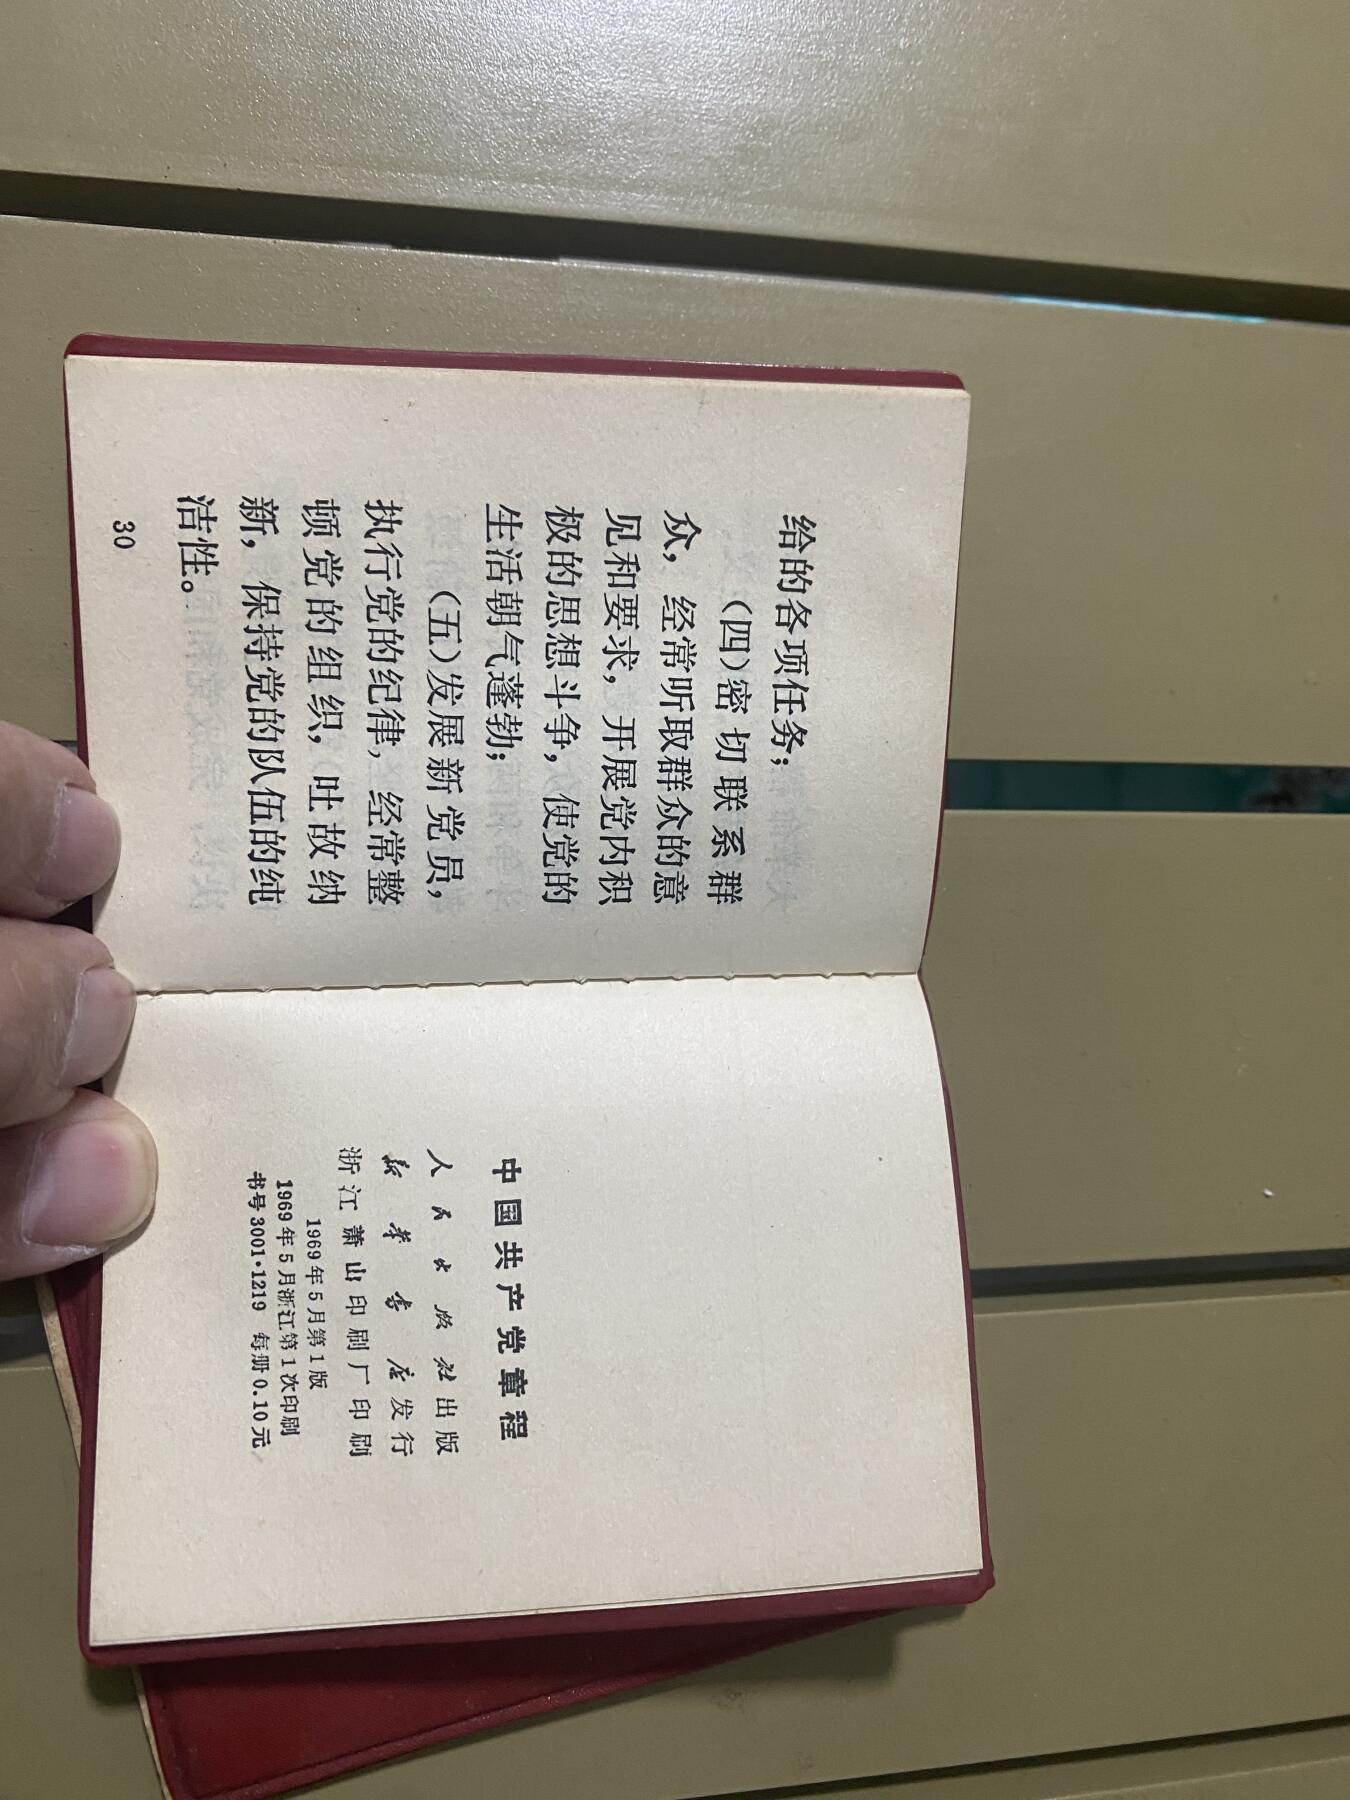 给的各项任务;
(四)密切联系群
众,经常听取群众的意
见和要求,开展党内积
极的思想斗争,使党的
生活朝气蓬勃;
(五)发展新党员,
执行党的纪律,经常整
顿党的组织,吐故纳
新,保持党的队伍的纯
洁性。
30
中国共产党章程
人民出版社出版
新华书店发行
浙江萧山印刷厂印刷
1969年5月第1版
1969年5月浙江第1次印刷
书号3001·1219 每册0.10元